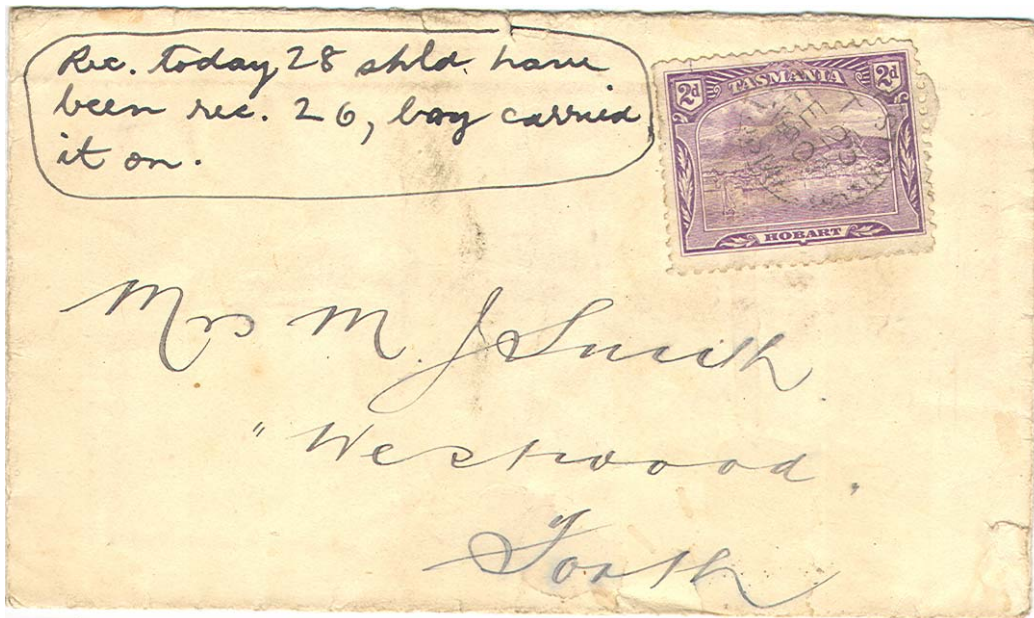 Rec. today 28 shld. have
been rec. 26, boy carried
it on.
2d TASMANIA 2d
HOBART
Mrs M. J Smith
"Westwood.
Forth